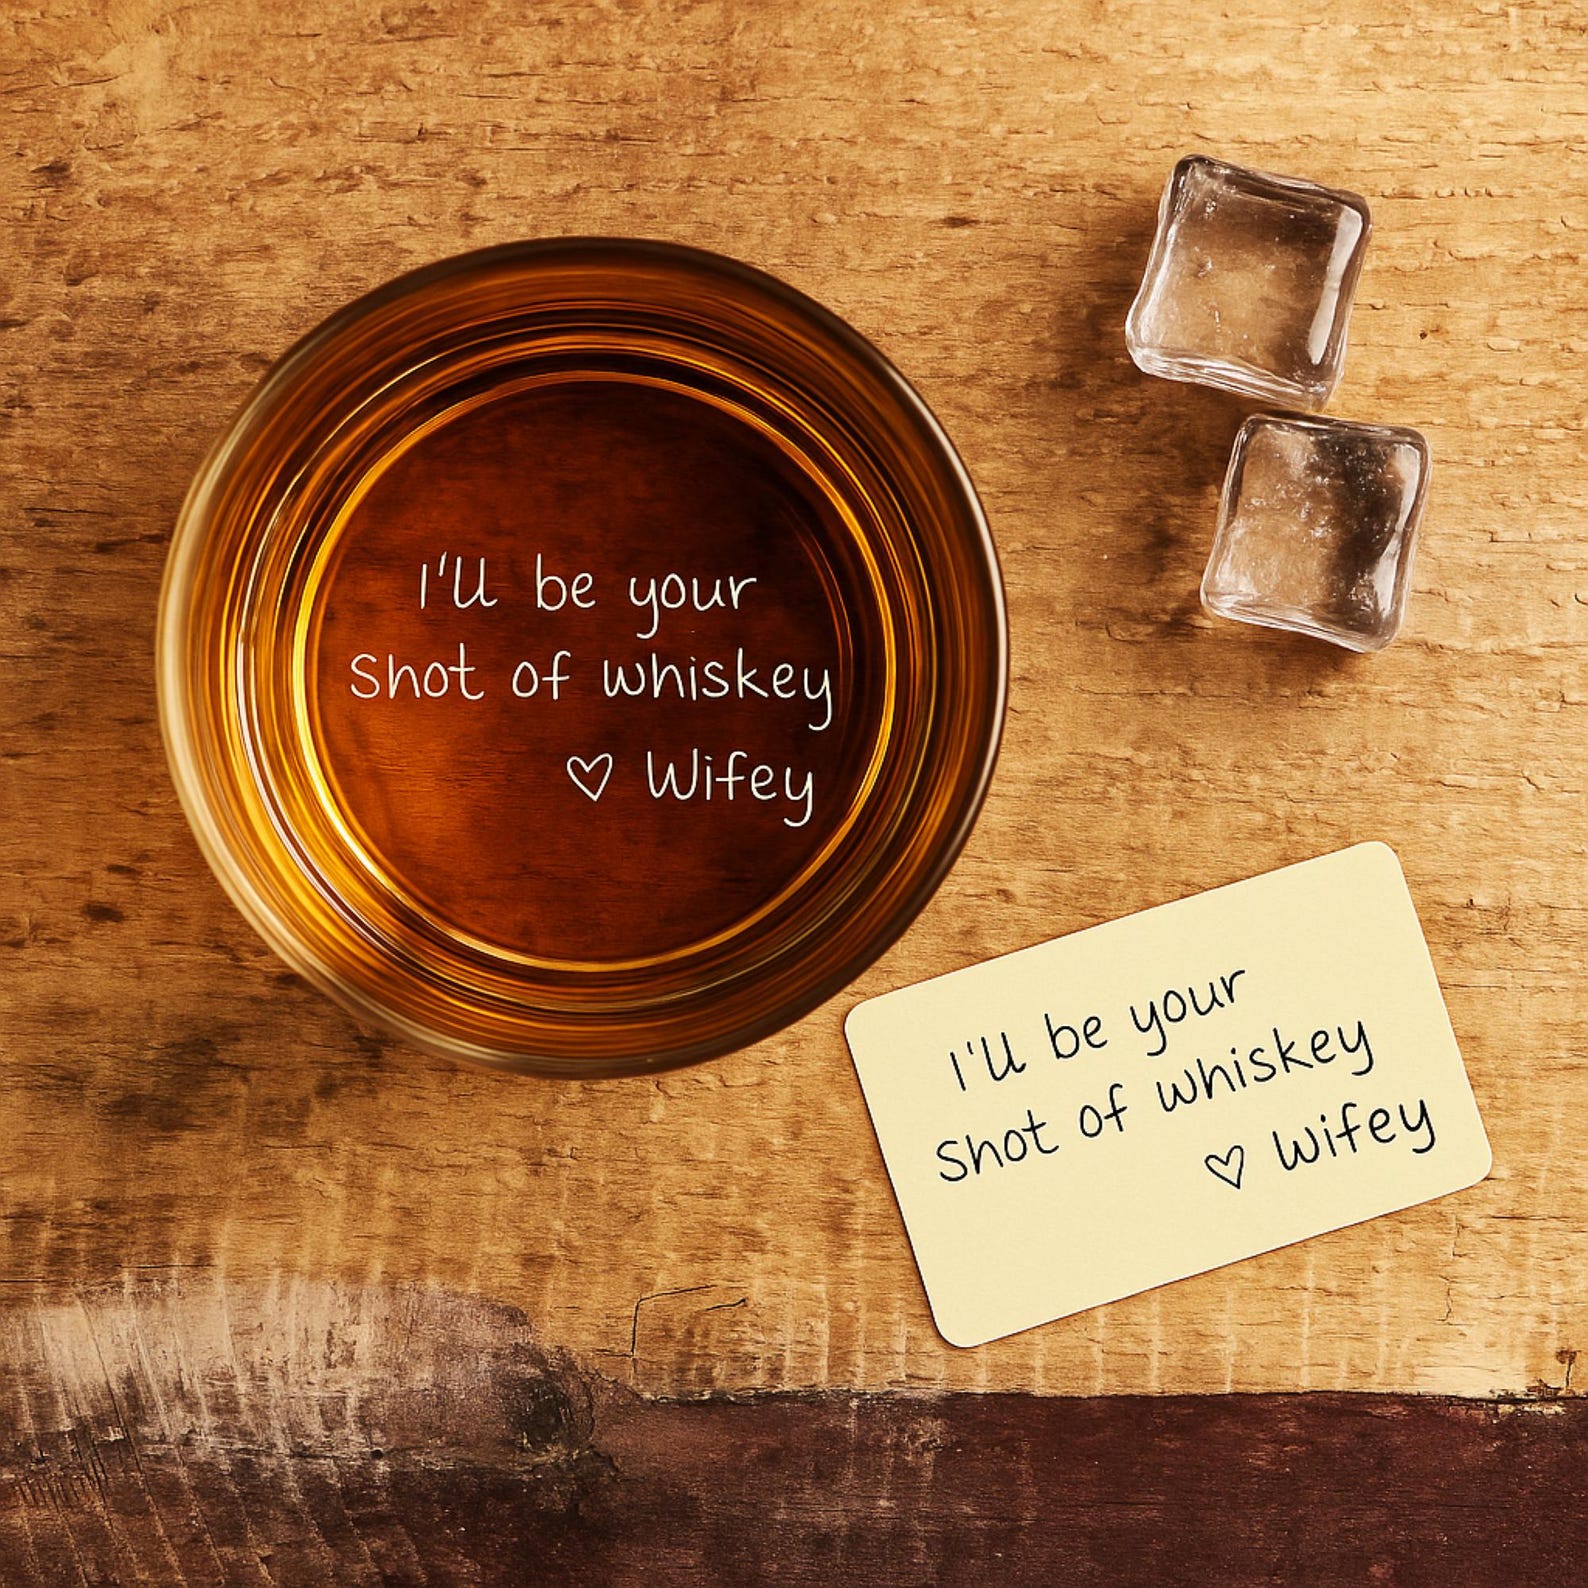 I'll be your
Shot of whiskey
♡ Wifey
I'll be your
Shot of whiskey
♡ Wifey